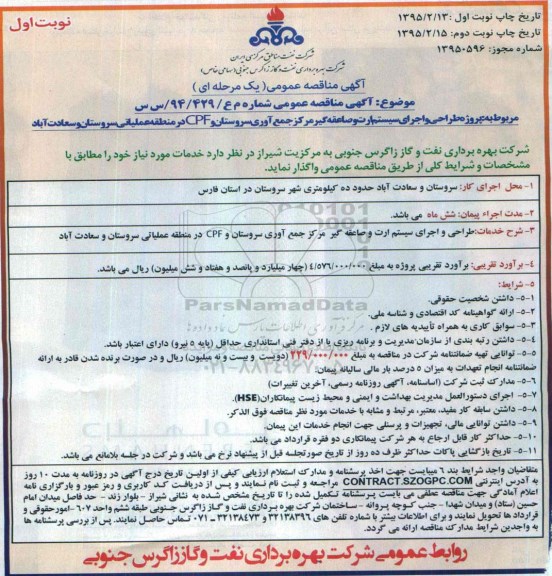 نوبت اول
تاریخ چاپ نوبت اول: ۱۳۹۵/۲/۱۳
تاریخ چاپ نوبت دوم: ۱۳۹۵/۲/۱۵
شماره مجوز: ۱۳۹۵۰۵۹۶
شرکت نفت مناطق مرکزی ایران
شرکت بهره برداری نفت و گاز زاگرس جنوبی (سهامی خاص)
آگهی مناقصه عمومی( یک مرحله ای )
موضوع: آگهی مناقصه عمومی شماره م ع/ ۹۴/۴۲۹/س س
مربوط به پروژه طراحی و اجرای سیستم ارت و صاعقه گیر مرکز جمع آوری سروستان و CPF در منطقه عملیاتی سروستان و سعادت آباد
شرکت بهره برداری نفت و گاز زاگرس جنوبی به مرکزیت شیراز در نظر دارد خدمات مورد نیاز خود را مطابق با
مشخصات و شرایط کلی از طریق مناقصه عمومی واگذار نماید.
۱- محل اجرای کار: سروستان و سعادت آباد حدود ده کیلومتری شهر سروستان در استان فارس
۲- مدت اجراء پیمان: شش ماه می باشد.
۳- شرح خدمات: طراحی و اجرای سیستم ارت و صاعقه گیر مرکز جمع آوری سروستان و CPF در منطقه عملیاتی سروستان و سعادت آباد
۴- برآورد تقریبی: برآورد تقریبی پروژه به مبلغ ۴/۵۷۶/۰۰۰/۰۰۰ (چهار میلیارد و پانصد و هفتاد و شش میلیون) ریال می باشد.
۵- شرایط:
۵-۱- داشتن شخصیت حقوقی.
۵-۲- ارائه گواهینامه کد اقتصادی و شناسه ملی.
۵-۳- سوابق کاری به همراه تأییدیه های لازم .
۵-۴- داشتن رتبه بندی از سازمان مدیریت و برنامه ریزی یا از دفتر فنی استانداری حداقل (پایه ۵ نیرو) دارای اعتبار باشد.
۵-۵- توانایی تهیه ضمانتنامه شرکت در مناقصه به مبلغ ۲۲۹/۰۰۰/۰۰۰ (دویست و بیست و نه میلیون) ریال و در صورت برنده شدن قادر به ارائه
ضمانتنامه انجام تعهدات به میزان ۵ درصد بار مالی سالیانه پیمان.
۵-۶- مدارک ثبت شرکت (اساسنامه، آگهی روزنامه رسمی، آخرین تغییرات)
۵-۷- اجرای دستورالعمل مدیریت بهداشت و ایمنی و محیط زیست پیمانکاران(HSE).
۵-۸- داشتن سابقه کار مفید، معتبر، مرتبط و مشابه با خدمات مورد نظر مناقصه فوق الذکر.
۵-۹- داشتن توانایی مالی، تجهیزات و پرسنلی جهت انجام خدمات این پیمان.
۵-۱۰- حداکثر کار قابل ارجاع به هر شرکت پیمانکاری دو فقره قرارداد می باشد.
۵-۱۱- تاریخ بازگشایی پاکات حداکثر ظرف ده روز از تاریخ صورتجلسه قبل از پیشنهاد نرخ می باشد و شرکت در جلسه بلامانع می باشد.
متقاضیان واجد شرایط بند ۶ میبایست جهت اخذ پرسشنامه و مدارک استعلام ارزیابی کیفی از اولین تاریخ درج آگهی در روزنامه به مدت ۱۰ روز
به آدرس اینترنتی CONTRACT.SZOGPC.COM مراجعه و ثبت نام نمایند و پس از دریافت کد کاربری و رمز عبور و بارگزاری نامه
اعلام آمادگی جهت مناقصه مطلقی می بایست پرسشنامه تکمیل شده را تا تاریخ مشخص شده به نشانی شیراز - بلوار زند - حد فاصل میدان امام
حسین (ستاد) و میدان شهدا - جنب کوچه پروانه - ساختمان شرکت بهره برداری نفت و گاز زاگرس جنوبی طبقه ششم واحد ۶۰۷ -امورحقوقی و
قرارداد ها تحویل نمایند و برای اطلاعات بیشتر با شماره تلفن های ۳۲۱۳۸۳۹۶ و ۳۲۱۳۸۴۷۳ - ۰۷۱ تماس حاصل نمایند. پس از بررسی پرسشنامه ها
به واجدین شرایط مدارک مناقصه ارائه می گردد.
روابط عمومی شرکت بهره برداری نفت و گاز زاگرس جنوبی
ParsNamadData